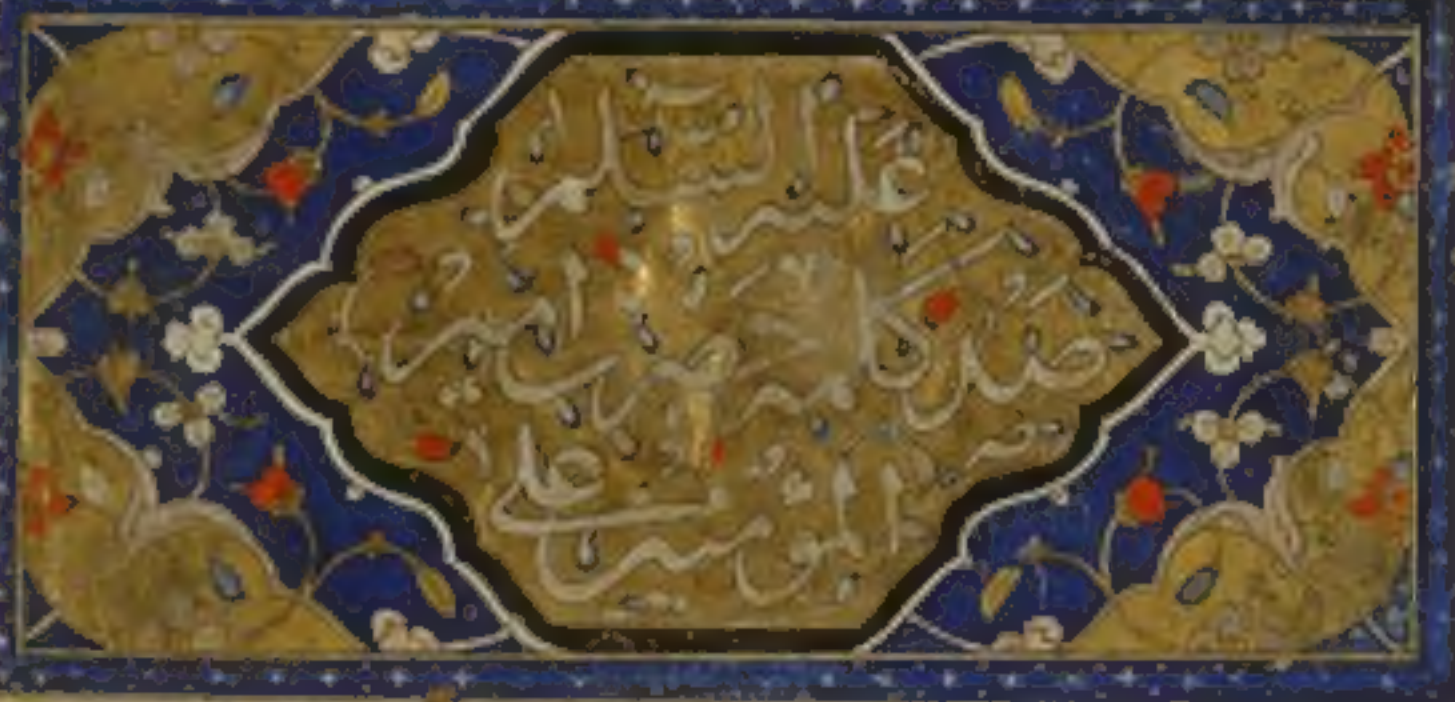 عليه السلم
صد كلمه حضرت امير
المؤمنين على